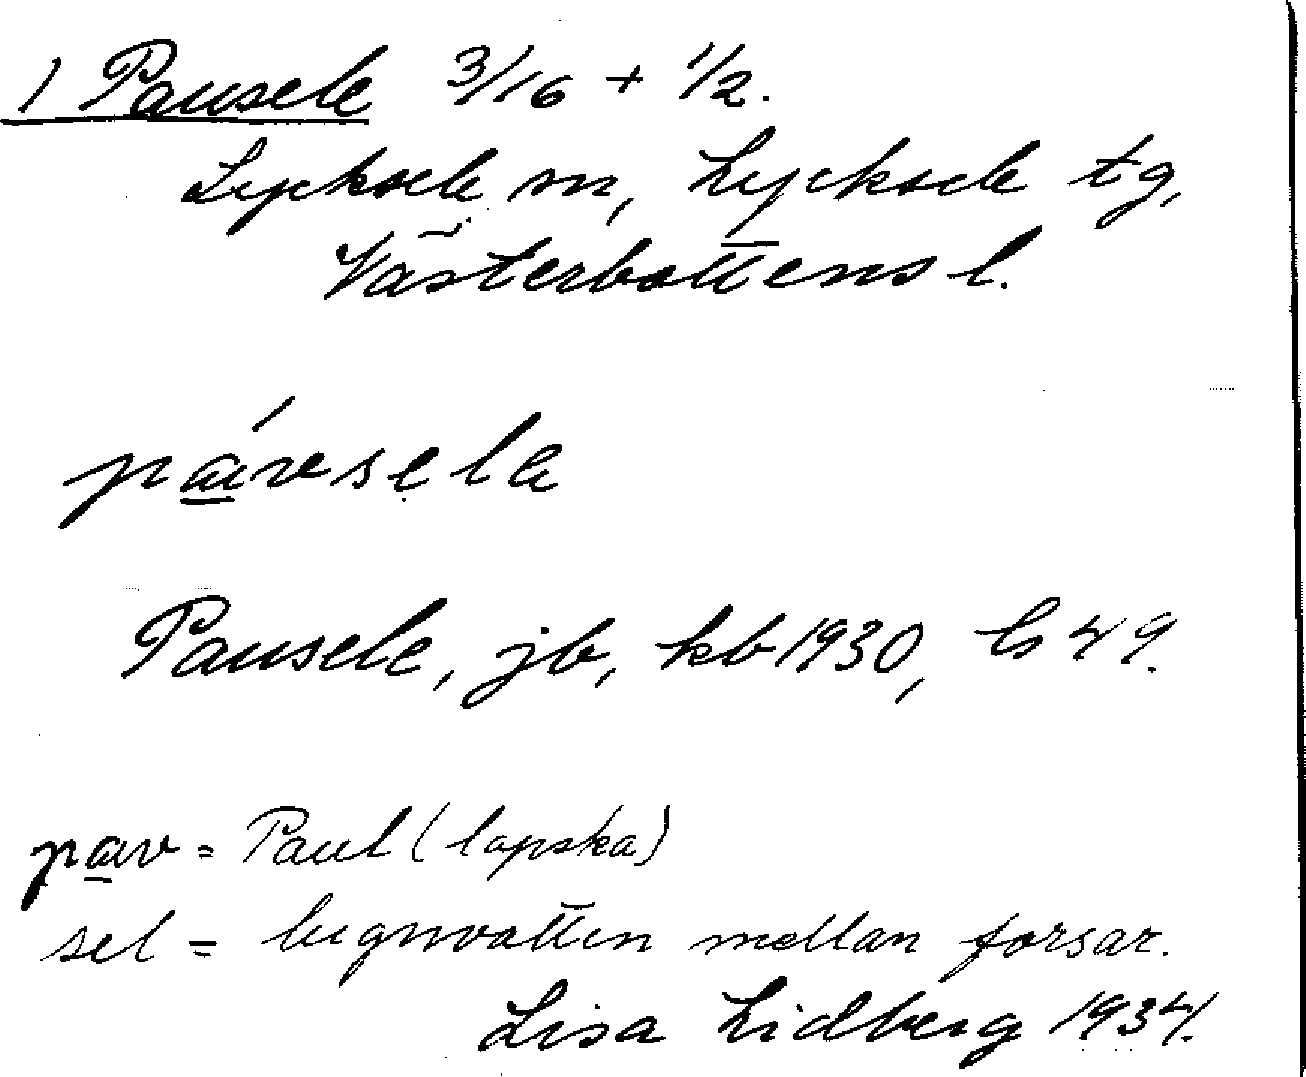 1 Pausele 3/16 + 1/2.
Lycksele m, Lycksele tg,
Västerbottens l.
pá̲vsẹla
Pausele, jb, kb 1930, b 49.
pa̲v = Paul (lapska)
sel = lugnvatten mellan forsar.
Lisa Lidberg 1934.